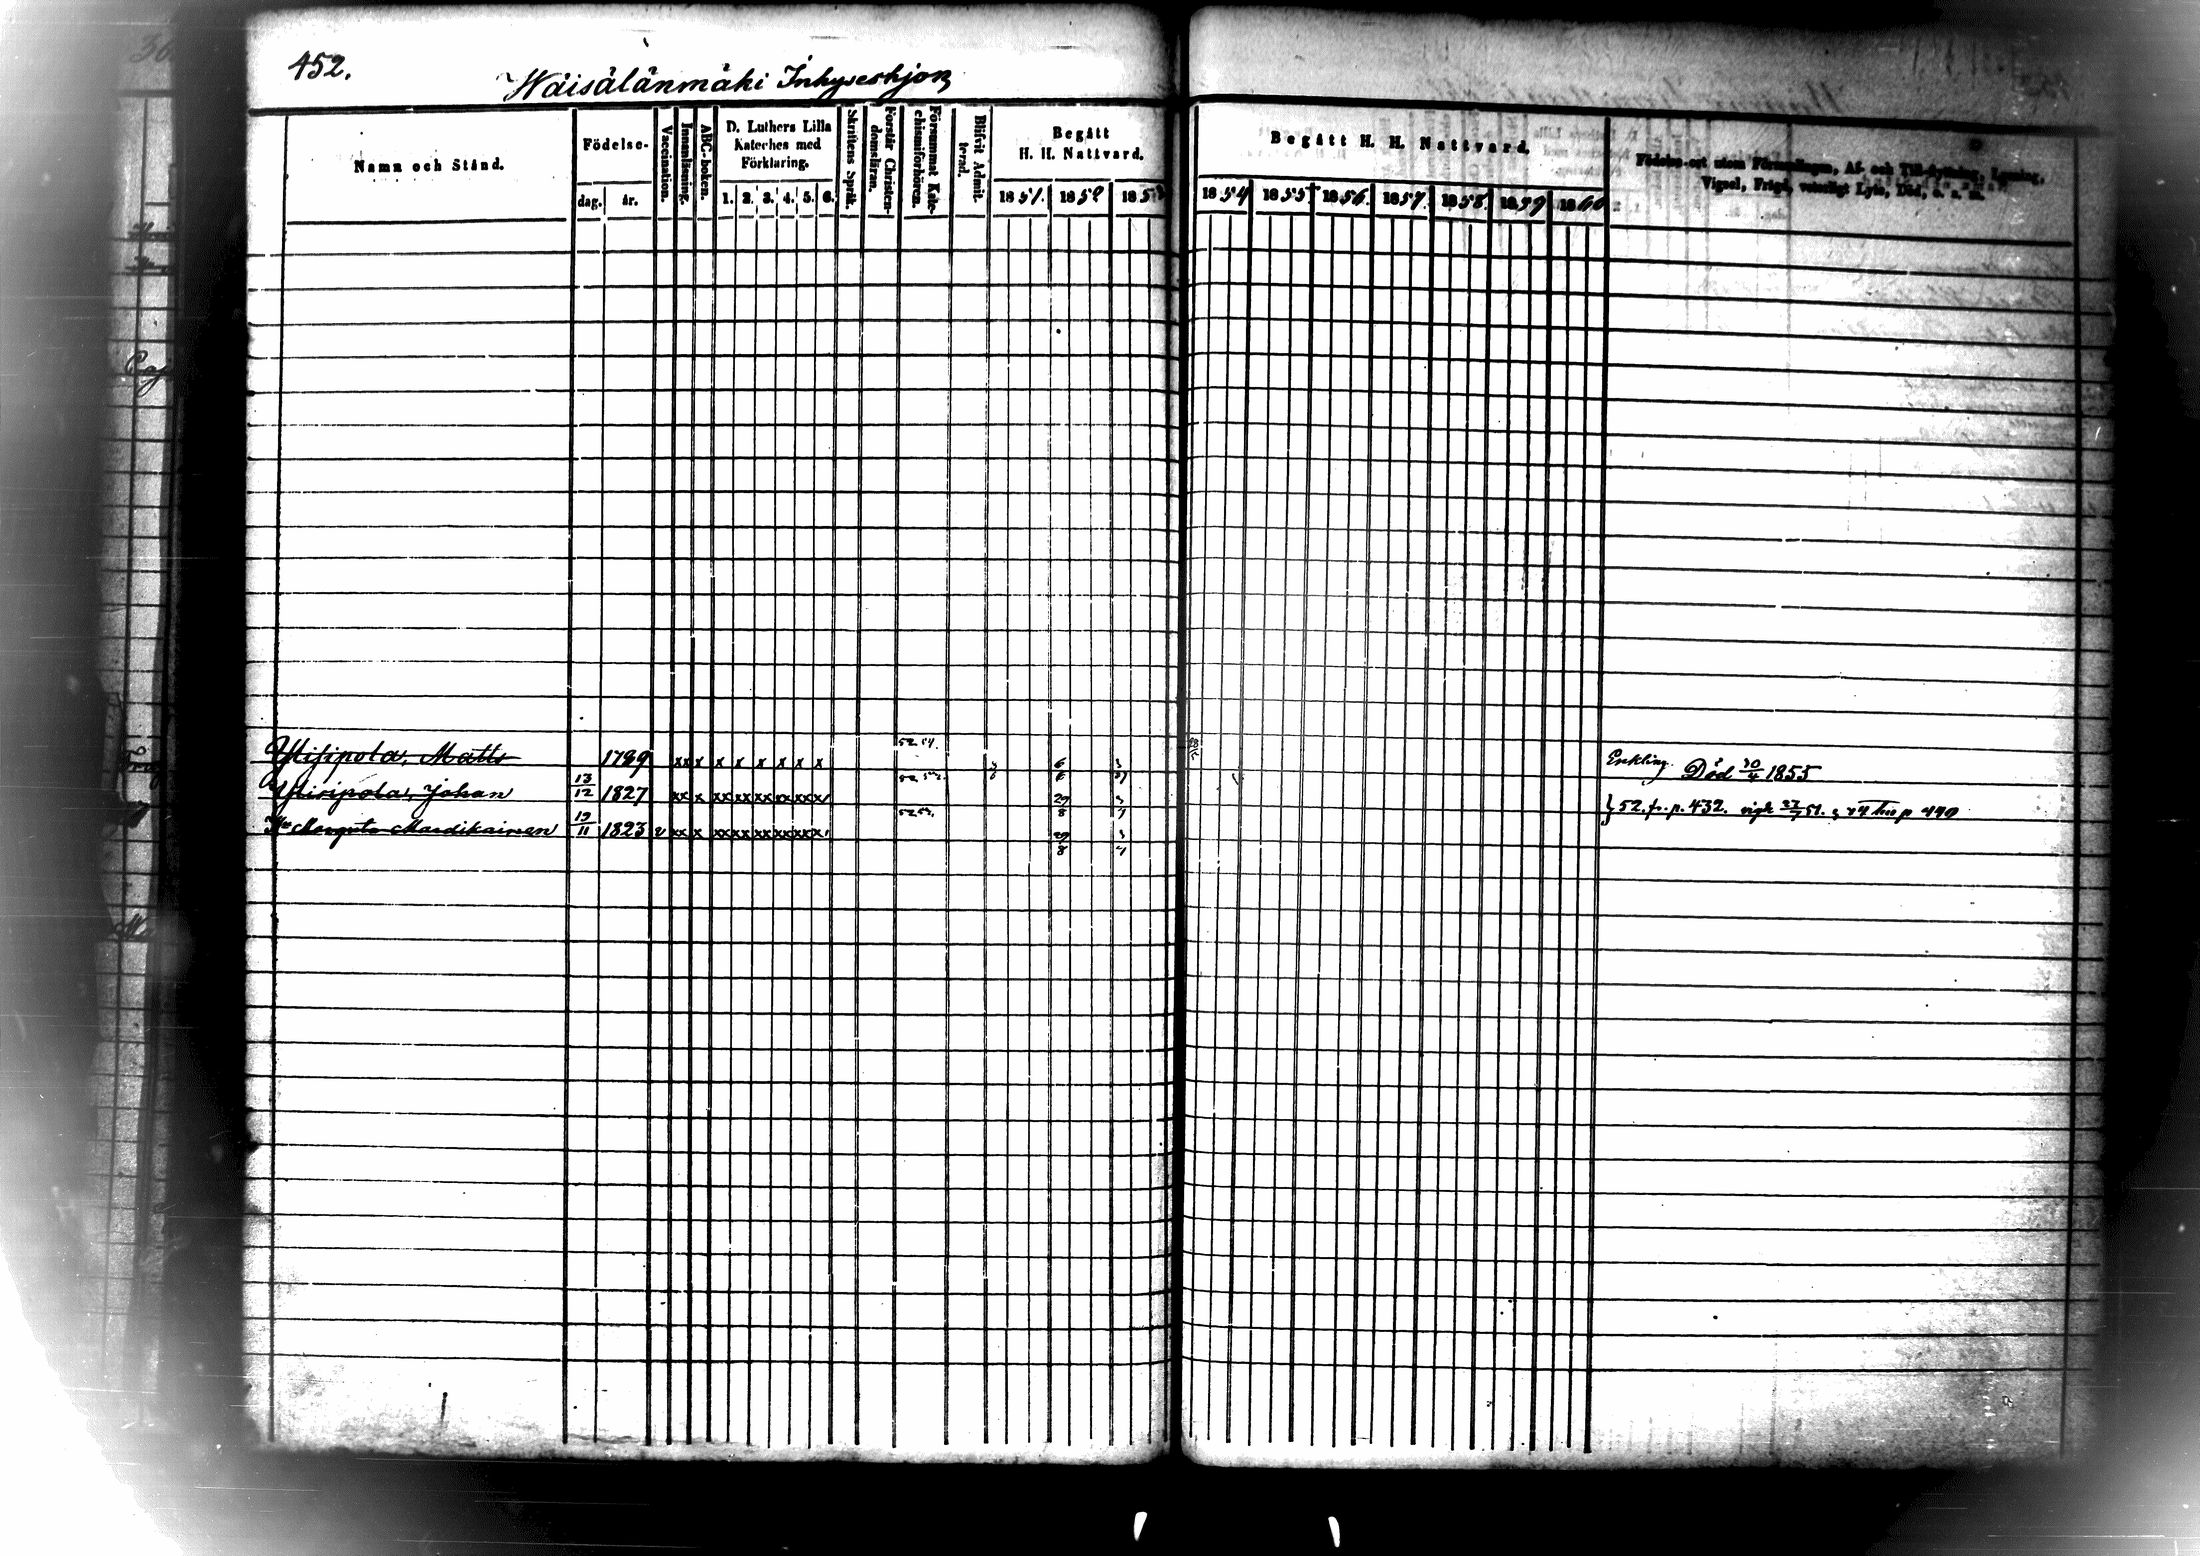 452.
Wäisälänmäki Inhyseshjon
Namn och Stånd.
Födelse-
dag. år.
Vaccination.
Innanläsning.
ABC-boken.
D. Luthers Lilla
Kateches med
Förklaring.
1. 2. 3. 4. 5. 6.
Skriftens Språk.
Förstår Christen-
domsläran.
Försummat Kate-
chismiförhören.
Blifvit Admit-
terad.
Begått
H. H. Nattvard.
1851. 1852 1853
Begått H. H. Nattvard.
1854 1855 1856 1857 1858 1859 1860
Födelse-ort utom Församlingen, Af- och Till-flyttning, Lysning,
Vigsel, Frigd, veterligt Lyte, Död, o. s. m.
Matts 1789 xx x x x x x x x 6 Enkling. Död 30/4 1855
Johan 13/12 1827 xx x xx xx xx xx xx x 29/8 52. fr. p. 432.
Mardikainen 19/11 1823 v xx x xx xx xx xx xx x 29/8